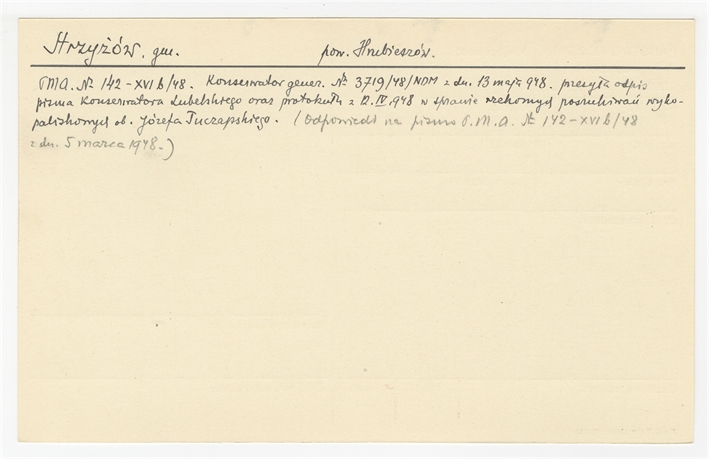 Strzyżów. gm. pow. Hrubieszów.
P.M.A. № 142-XVIb/48. Konserwator gener. № 3719/48/NDM z dn. 13 maja 948. przesyła odpis
pisma Konserwatora Lubelskiego oraz protokułu z 12.IV.948 w sprawie rzekomych poszukiwań wyko-
paliskowych ob. Józefa Tuczapskiego. (Odpowiedź na pismo P.M.A. № 142-XVIb/48
z dn. 5 marca 1948.)